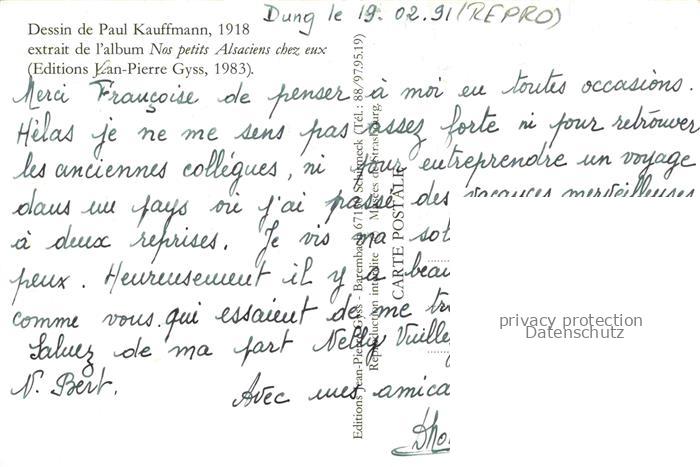 Dung le 19.02.91 (REPRO)
Dessin de Paul Kauffmann, 1918
extrait de l'album Nos petits Alsaciens chez eux
(Editions Jean-Pierre Gyss, 1983).
Merci Françoise de penser à moi en toutes occasions.
Hélas je ne me sens pas assez forte ni pour retrouver
les anciennes collégues, ni pour entreprendre un voyage
dans un pays où j'ai passé des vacances merveilleuses
à deux reprises. Je vis ma
peux. Heureusement il y a
comme vous qui essaient de me
Saluez de ma part Nelly
N. Bert.
Avec mes
Editions Jean-Pierre Gyss - Barembach 67130 Schirmeck (Tél.: 88/97.95.19)
Reproduction interdite Musées de Strasbourg
CARTE POSTALE
privacy protection
Datenschutz